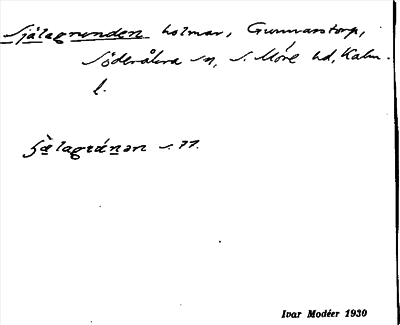 Själagrunden holmar, Gunnarstorp,
Söderåkra sn, S. Möre hd, Kalm.
l.
s. 77.
Ivar Modéer 1930